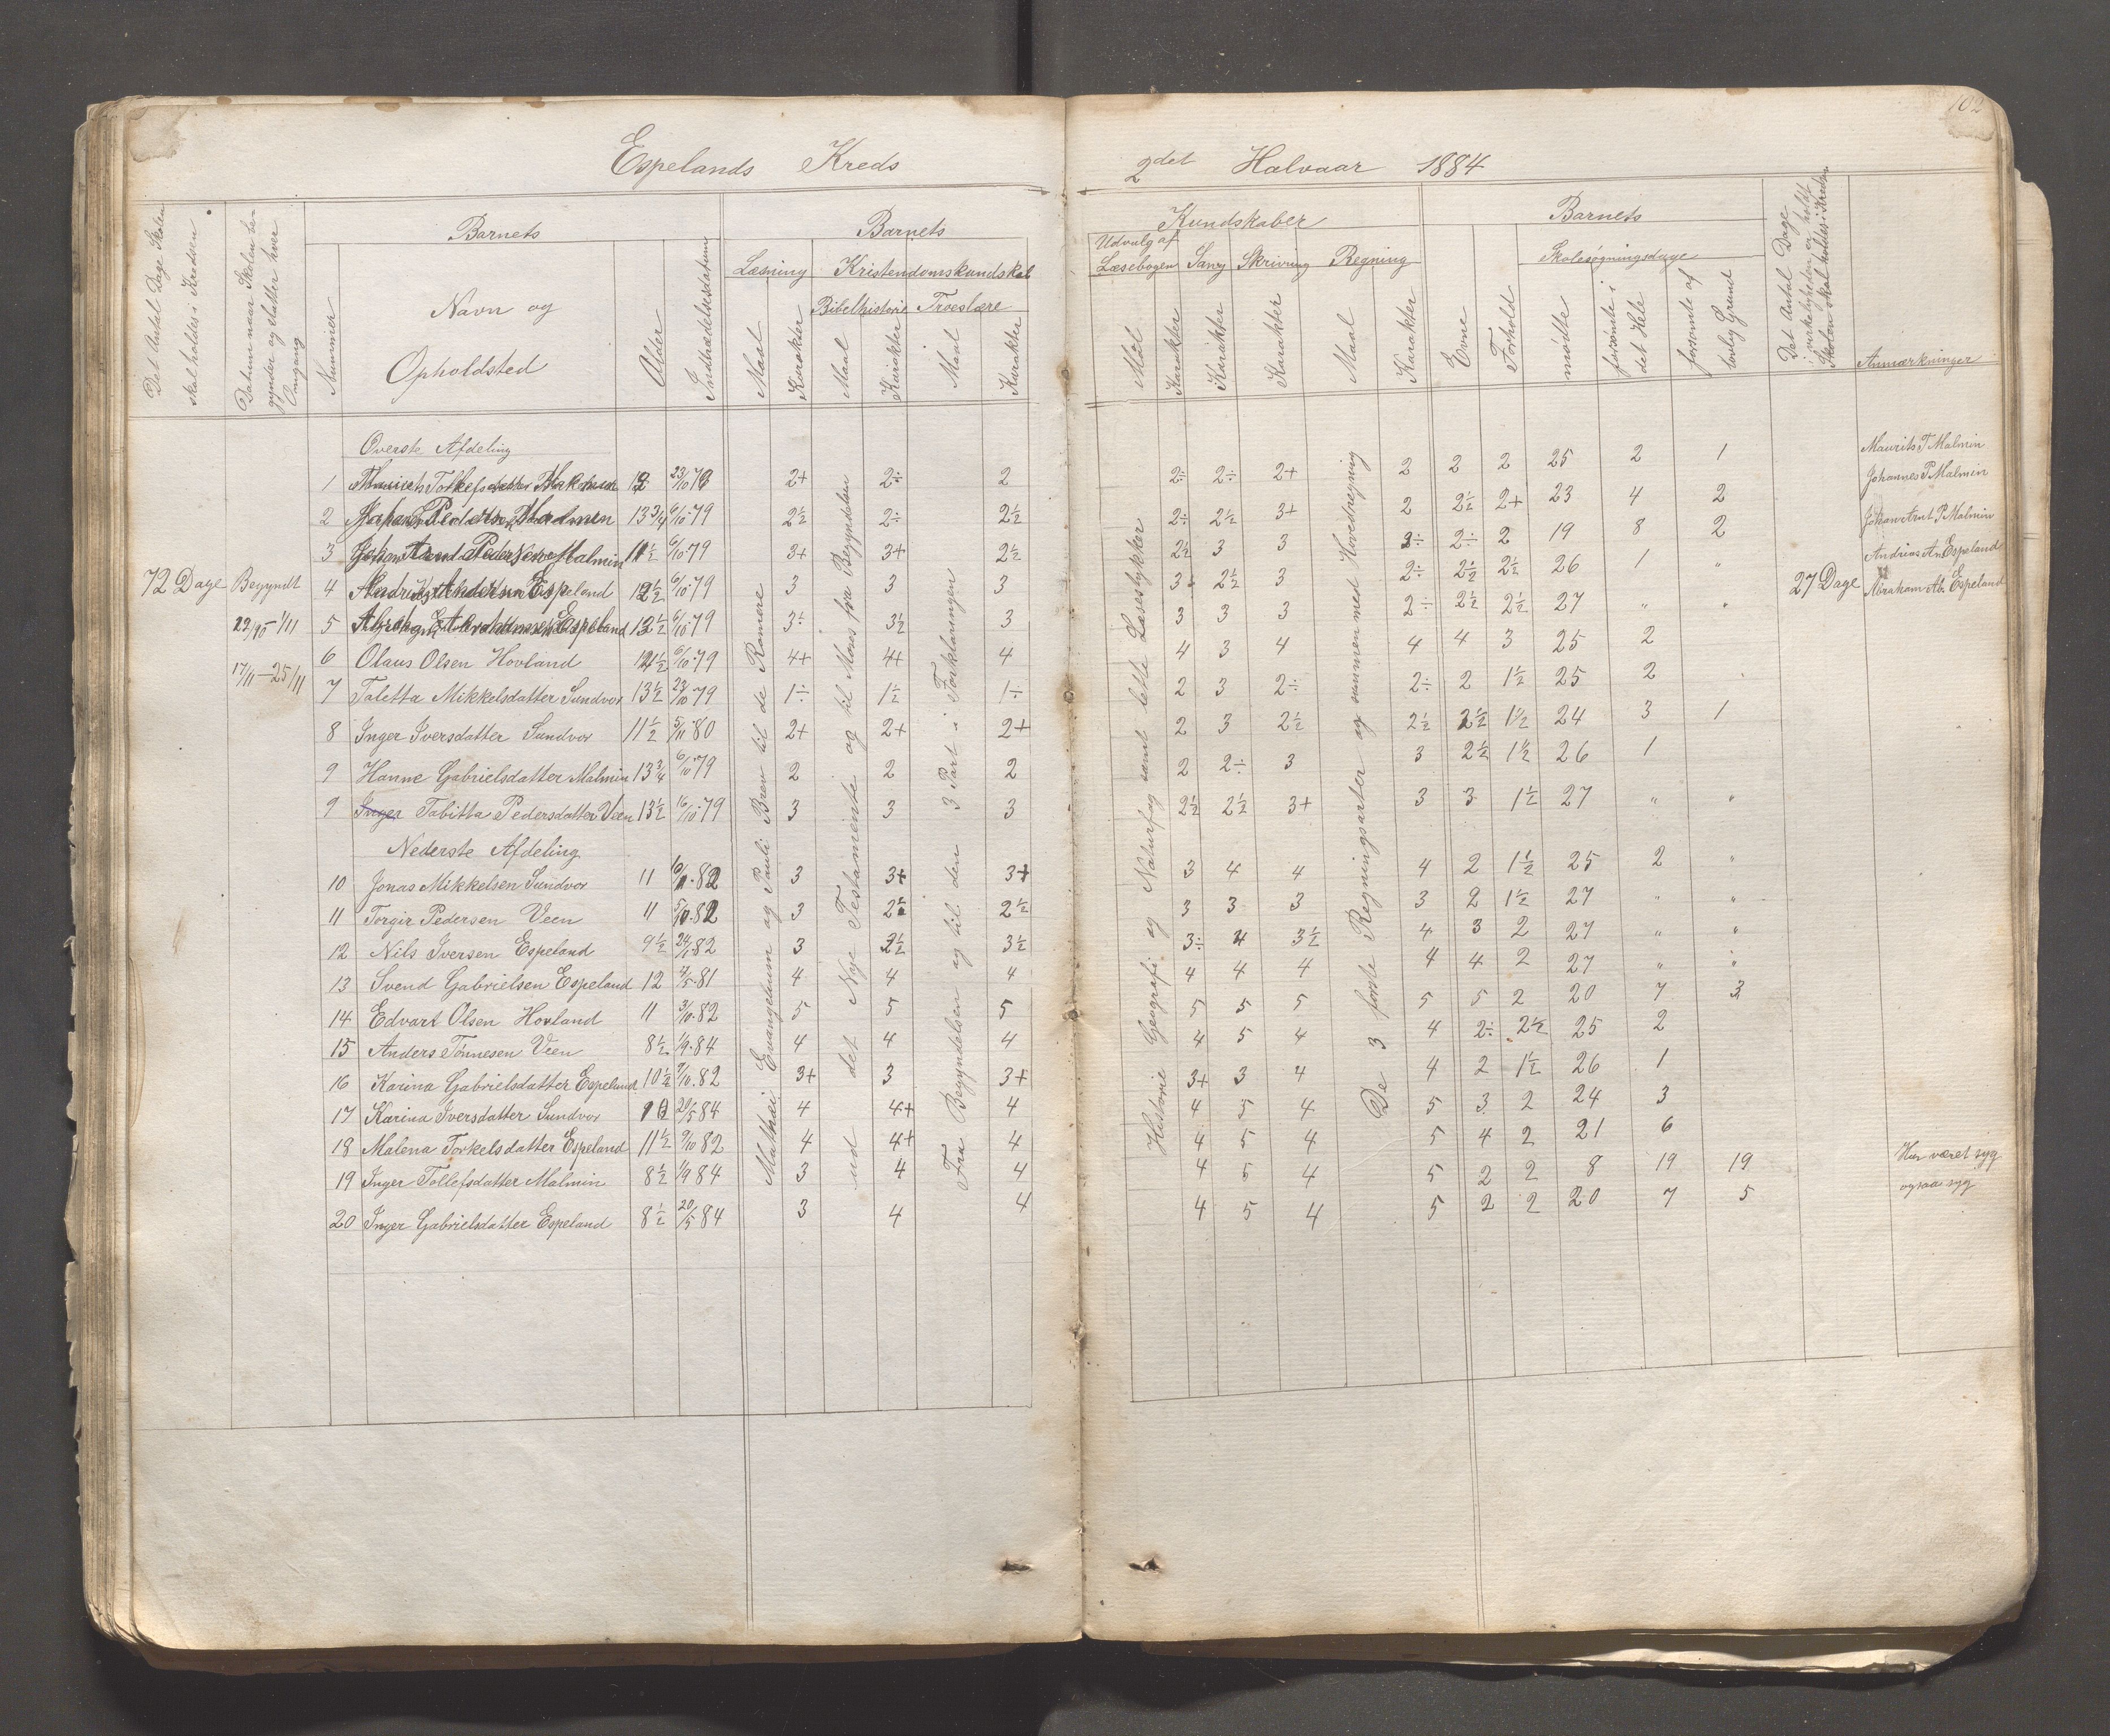 102
Espelands Kreds
2det Halvaar 1884
Det Antal Dage Skolen skal holdes i Kredsen
Datum naar Skolen begynder og slutter hver Omgang
Barnets
Nummer
Navn og Opholdsted
Alder
Indtrædelsesdatum
Barnets
Læsning
Kristendomskundskab
Bibelhistorie
Troeslære
Maal
Karakter
Maal
Karakter
Maal
Karakter
Kundskaber
Udvalg af Læsebogen
Sang
Skrivning
Regning
Maal
Karakter
Karakter
Karakter
Maal
Karakter
Barnets
Evne
Forhold
Skolesøgningsdage
mødte
forsømte i det Hele
forsømte af lovlig Grund
Det Antal Dage Skolen
Anmærkninger
72 Dage
Begyndt
22/10 - 1/11
17/11 - 25/11
Mathæi Evangelium og Pauli Brev til de Romere
ud det Nye Testamente og til Moses fra Begyndelsen
Fra Begyndelsen og til den 3 Part i Forklaringen
Historie Geografi og Naturfag samt lette Læsestykker
De 3 første Regningsarter og sammen med Hovedregning
27 Dage
Øverste Afdeling
1 2+ 2÷ 2 2÷ 2÷ 2+ 2 2 2 25 2 1 Maurits T Malmin
2 Pedersen Malmin 13 3/4 6/10 79 2½ 2÷ 2½ 2÷ 2½ 3+ 2 2½ 2+ 23 4 2 Johannes P Malmin
3 Johan Arnt Pedersen Malmin 11½ 6/10 79 3+ 3+ 2½ 2½ 3 3 2÷ 2 19 8 2 Johan Arnt P Malmin
4 Espeland 12½ 6/10 79 3 3 3 3 2½ 3 2÷ 2½ 2½ 26 1 " Andreas An Espeland
5 Espeland 12½ 6/10 79 3÷ 3½ 3 3 3 3 2÷ 2½ 2½ 27 " " Abraham Ab. Espeland
6 Olaus Olsen Hovland 6/10 79 4+ 4+ 4 4 3 4 4 4 3 25 2
7 Taletta Mikkelsdatter Sundvor 13½ 23/10 79 1÷ 1½ 1÷ 2 3 2÷ 2÷ 2 1½ 25 2
8 Inger Iversdatter Sundvor 11½ 5/11 80 2+ 2+ 2+ 2 3 2½ 2½ 2½ 1½ 24 3 1
9 Hanne Gabrielsdatter Malmin 13 3/4 6/10 79 2 2 2 2 2÷ 3 3 2½ 1½ 26 1
9 Inger Tabitta Pedersdatter Veen 13½ 16/10 79 3 3 3 2½ 2½ 3+ 3 3 1½ 27 " "
Nederste Afdeling
10 Jonas Mikkelsen Sundvor 11 82 3 3+ 3+ 3 4 4 4 2 1½ 25 2 "
11 Torgir Pedersen Veen 11 5/10 82 3 2½ 2½ 3 3 3 3 2 1½ 27 " "
12 Nils Iversen Espeland 9½ 82 3 2½ 3½ 3÷ 4 3½ 4 3 2 27 " "
13 Svend Gabrielsen Espeland 12 4/5 81 4 4 4 4 4 4 4 4 2 27 " "
14 Edvart Olsen Hovland 11 3/10 82 5 5 5 5 5 5 5 5 2 20 7 3
15 Anders Tønnesen Veen 8½ 1/9 84 4 4 4 4 5 4 4 2÷ 2½ 25 2
16 Karina Gabrielsdatter Espeland 10½ 9/10 82 3+ 3 3+ 3+ 3 4 4 2 1½ 26 1
17 Karina Iversdatter Sundvor 20/5 84 4 4+ 4 4 5 4 5 3 2 24 3
18 Malena Torkelsdatter Espeland 11½ 9/10 82 4 4+ 4 4 5 4 5 4 2 21 6
19 Inger Tollefsdatter Malmin 8½ 1/9 84 3 4 4 4 5 4 5 2 2 8 19 19 Har været syg
20 Inger Gabrielsdatter Espeland 8½ 20/5 84 3 4 4 4 5 4 5 2 2 20 7 5 ogsaa syg